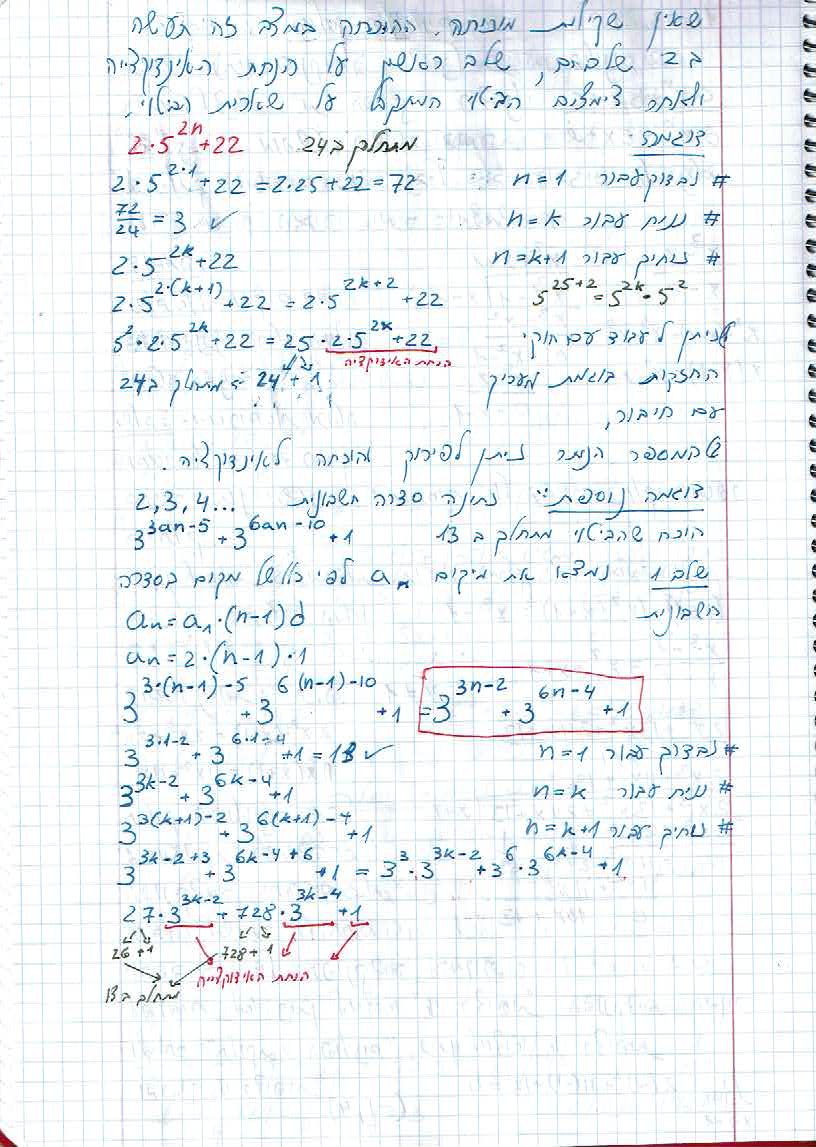 שאין שקילות מוכיחה. ההוכחה במצב זה תעשה
ב 2 שלבים, שלב ראשון על הנחת האינדוקציה
ולאחר צימצום הביטוי המתקבל על שארית הביטוי.
דוגמה: 2·5^{2n}+22 מתחלק ב 24
# נבדוק עבור n=1 2·5^{2·1}+22=2·25+22=72
72/24 = 3 ✓
# נניח עבור n=k
2·5^{2k}+22
# נוכיח עבור n=k+1
2·5^{2·(k+1)}+22 = 2·5^{2k+2}+22
5^{25+2}=5^{2k}·5^2
5^2·2·5^{2k}+22 = 25·2·5^{2k}+22
ניתן לעבוד עם חוקי
הנחת האינדוקציה
24+1 מתחלק ב 24
החזקות בוגמת מעריך
עם חיבור,
שהמספר הנותר ניתן לפירוק והוכחה לאינדוקציה.
דוגמה נוספת: נתינה סדרה חשבונית 2,3,4...
הוכח שהביטוי מתחלק ב 13 3^{3an-5}+3^{6an-10}+1
שלב 1 נמצא את מיקום a_n לפי כל של מקום בסדרה
חשבונית
an=a1·(n-1)d
an=2·(n-1)·1
3^{3·(n-1)-5}+3^{6(n-1)-10}+1 = 3^{3n-2}+3^{6n-4}+1
# נבדוק עבור n=1 3^{3·1-2}+3^{6·1-4}+1=13 ✓
# נניח עבור n=k 3^{3k-2}+3^{6k-4}+1
# נוכיח עבור n=k+1 3^{3(k+1)-2}+3^{6(k+1)-4}+1
3^{3k-2+3}+3^{6k-4+6}+1 = 3^3·3^{3k-2}+3^6·3^{6k-4}+1
27·3^{3k-2}+728·3^{3k-4}+1
26+1 728+1
הנחת האינדוקצייה
מתחלק ב 13